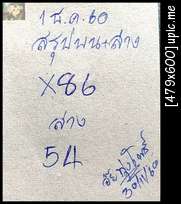 1 ธ.ค.60
สรุปบน+ล่าง
X86
ล่าง
54
30/11/60
[479x600] upic.me